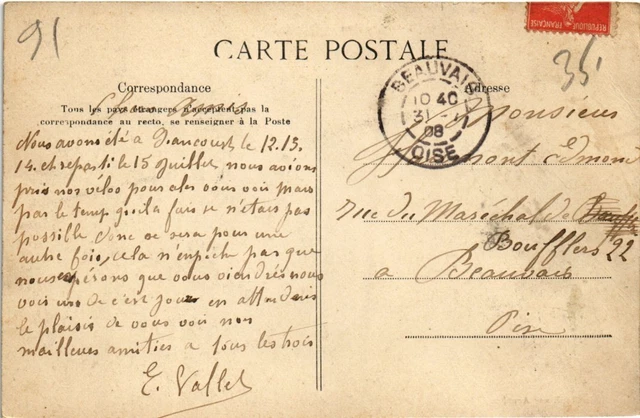 91
35
RÉPUBLIQUE FRANÇAISE
CARTE POSTALE
BEAUVAIS
10 40
31
08
OISE
Correspondance
Adresse
Tous les pays étrangers n'acceptent pas la
correspondance au recto, se renseigner à la Poste
Nous avons été a Liancourt le 12.13.
14. et reparti le 15 Juillet nous avions
pris nos vélos pour aler vous voir mais
par le temp qu'il a fais se n'étais pas
possible donc ce sera pour une
autre fois, cela n'enpêche pas que
nous espérons que vous viendrés nous
voir un de c'est jour en attendant
le plaisir de vous voir nos
mailleures amitiés a tous les trois
E. Vallet
Monsieur
mont Edmond
rue du Maréchal de
Boufflers 22
a Beauvais
Oise